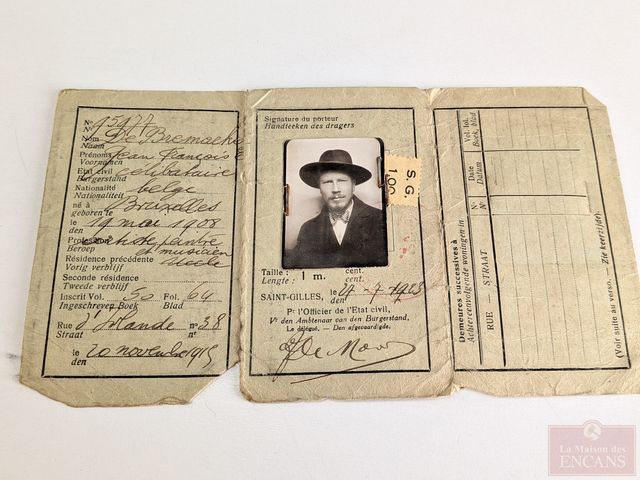 N° 15977
N°
Nom De Bremaeke
Naam
Prénoms Jean François
Voornamen
Etat civil célibataire
Burgerstand
Nationalité belge
Nationaliteit
né à Bruxelles
geboren te
le 19 mai 1908
den
Profession artiste peintre
Beroep et musicien
Résidence précédente Uccle
Vorig verblijf
Seconde résidence
Tweede verblijf
Inscrit Vol. 50 Fol. 64
Ingeschreven Boek Blad
Rue d'Irlande n° 38
Straat n°
le 20 novembre
den
Signature du porteur
Handteeken des dragers
S. G.
1.00
Taille : 1 m. cent.
Lengte : cent.
SAINT-GILLES, le
den
Pr l'Officier de l'Etat civil,
Vr den Ambtenaar van den Burgerstand,
Le délégué, — Den afgevaardigde,
Demeures successives à
Achtereenvolgende woningen in
RUE — STRAAT
N° N°
Date
Datum
Vol. fol.
Boek, blad
(Voir suite au verso. — Zie keerzijde).
La Maison des
ENCANS